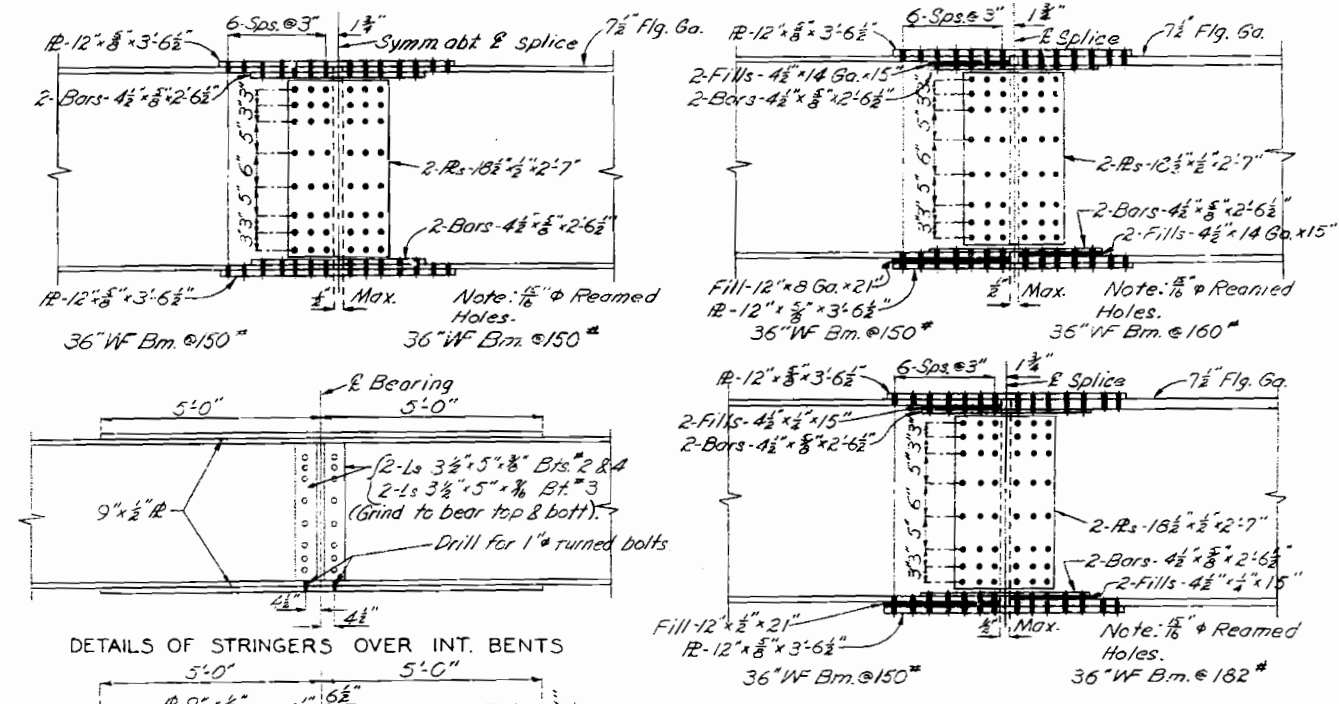 6-Sps.@3" 1¾"
7½" Flg. Ga.
℄-12"x⅝"x3'-6½"
Symm abt ℄ splice
2-Bars-4½"x⅝"x2'-6½"
3" 3" 5" 6" 5" 3" 3"
2-℄s-18½"x½"x2'-7"
2-Bars-4½"x⅝"x2'-6½"
℄-12"x⅝"x3'-6½"
½" Max.
Note: 15/16" φ Reamed
Holes.
36" WF Bm. @150# 36" WF Bm. @150#
6-Sps.@3" 1¾"
℄-12"x⅝"x3'-6½"
℄ Splice
7½" Flg. Ga.
2-Fills-4½"x14 Ga.x15"
2-Bars-4½"x⅝"x2'-6½"
3" 3" 5" 6" 5" 3" 3"
2-℄s-18½"x½"x2'-7"
2-Bars-4½"x⅝"x2'-6½"
2-Fills-4½"x14 Ga.x15"
Fill-12"x8 Ga.x21"
℄-12"x⅝"x3'-6½"
½" Max.
Note: 15/16" φ Reamed
Holes.
36" WF Bm. @150# 36" WF Bm. @160#
℄ Bearing
5'-0" 5'-0"
2-Ls 3½"x5"x⅜" Bts. #2 & 4
2-Ls 3½"x5"x Bt. #3
(Grind to bear top & bott).
9"x½" ℄
Drill for 1"φ turned bolts
4½" 4½"
DETAILS OF STRINGERS OVER INT. BENTS
5'-0" 5'-0"
6½"
6-Sps.@3" 1¾"
℄-12"x⅝"x3'-6½"
℄ Splice
7½" Flg. Ga.
2-Fills-4½"x¼"x15"
2-Bars-4½"x⅝"x2'-6½"
3" 3" 5" 6" 5" 3" 3"
2-℄s-18½"x½"x2'-7"
2-Bars-4½"x⅝"x2'-6½"
2-Fills-4½"x¼"x15"
Fill-12"x½"x21"
℄-12"x⅝"x3'-6½"
½" Max.
Note: 15/16" φ Reamed
Holes.
36" WF Bm. @150# 36" WF Bm. @ 182#